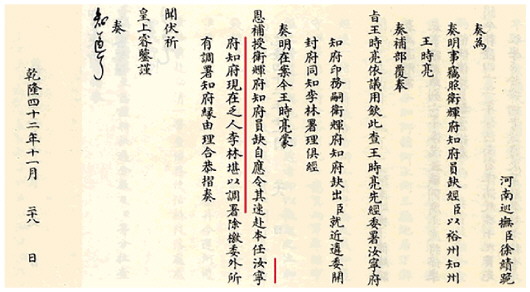 河南巡撫臣徐績跪
奏為
奏明事竊照衛輝府知府員缺經臣以裕州知州
王時亮
奏補部覆奉
旨王時亮依議用欽此查王時亮先經委署汝寧府
知府印務嗣衛輝府知府缺出臣就近遴委開
封府同知李林署理俱經
奏明在案今王時亮蒙
恩補授衛輝府知府員缺自應令其速赴本任汝寧
府知府現在乏人李林堪以調署除檄委外所
有調署知府緣由理合恭摺奏
聞伏祈
皇上睿鑒謹
奏
知道了
乾隆四十二年十一月二十八日